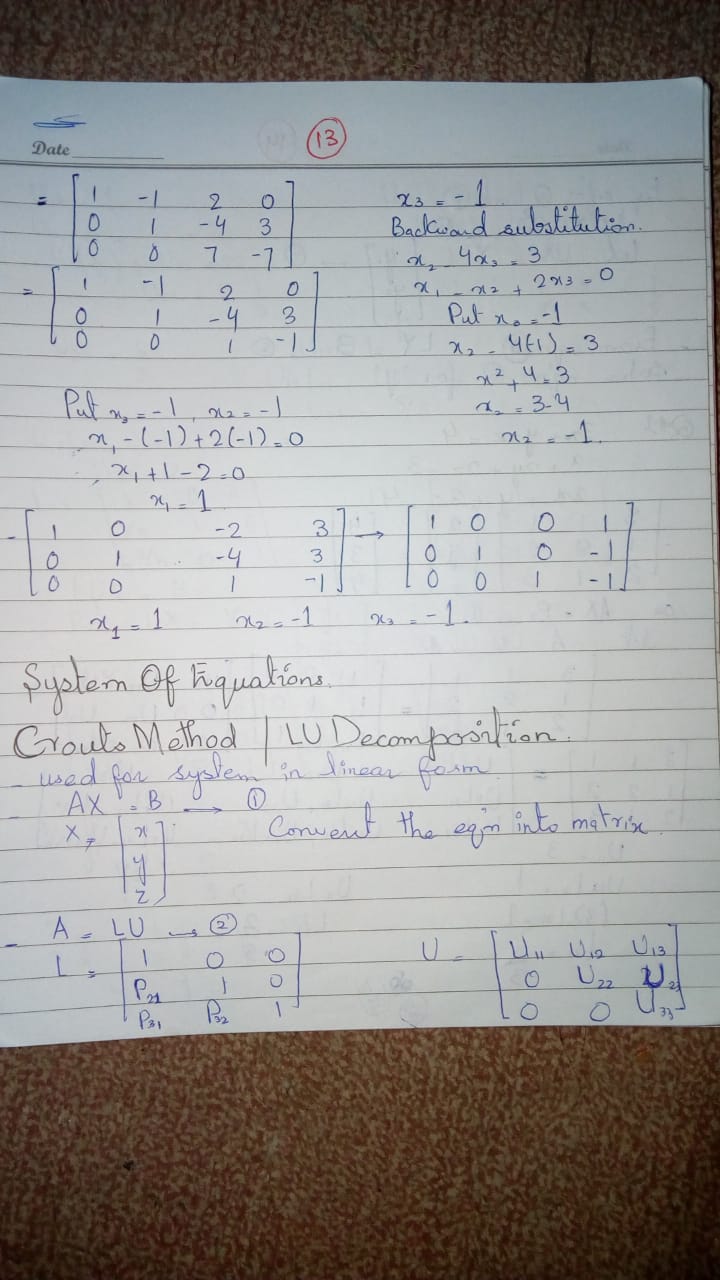 13
Date
= [ 1 -1 2 0 ]
0 1 -4 3
0 0 7 -7
= [ 1 -1 2 0 ]
0 1 -4 3
0 0 1 -1
x3 = -1
Backward substitution.
x2 - 4x3 = 3
x1 - x2 + 2x3 = 0
Put x3 = -1
x2 - 4(-1) = 3
x2 + 4 = 3
x2 = 3-4
x2 = -1.
Put x3 = -1, x2 = -1
x1 - (-1) + 2(-1) = 0
x1 + 1 - 2 = 0
x1 = 1
- [ 1 0 -2 3 ] → [ 1 0 0 1 ]
0 1 -4 3 0 1 0 -1
0 0 1 -1 0 0 1 -1
x1 = 1 x2 = -1 x3 = -1.
System Of Equations.
Crouts Method / LU Decomposition.
- used for system in linear form
- AX = B → ①
X = [ x y z ] Convert the eqn into matrix
- A = LU → ②
L = [ 1 0 0 ] U = [ U11 U12 U13 ]
P21 1 0 0 U22 U23
P31 P32 1 0 0 U33